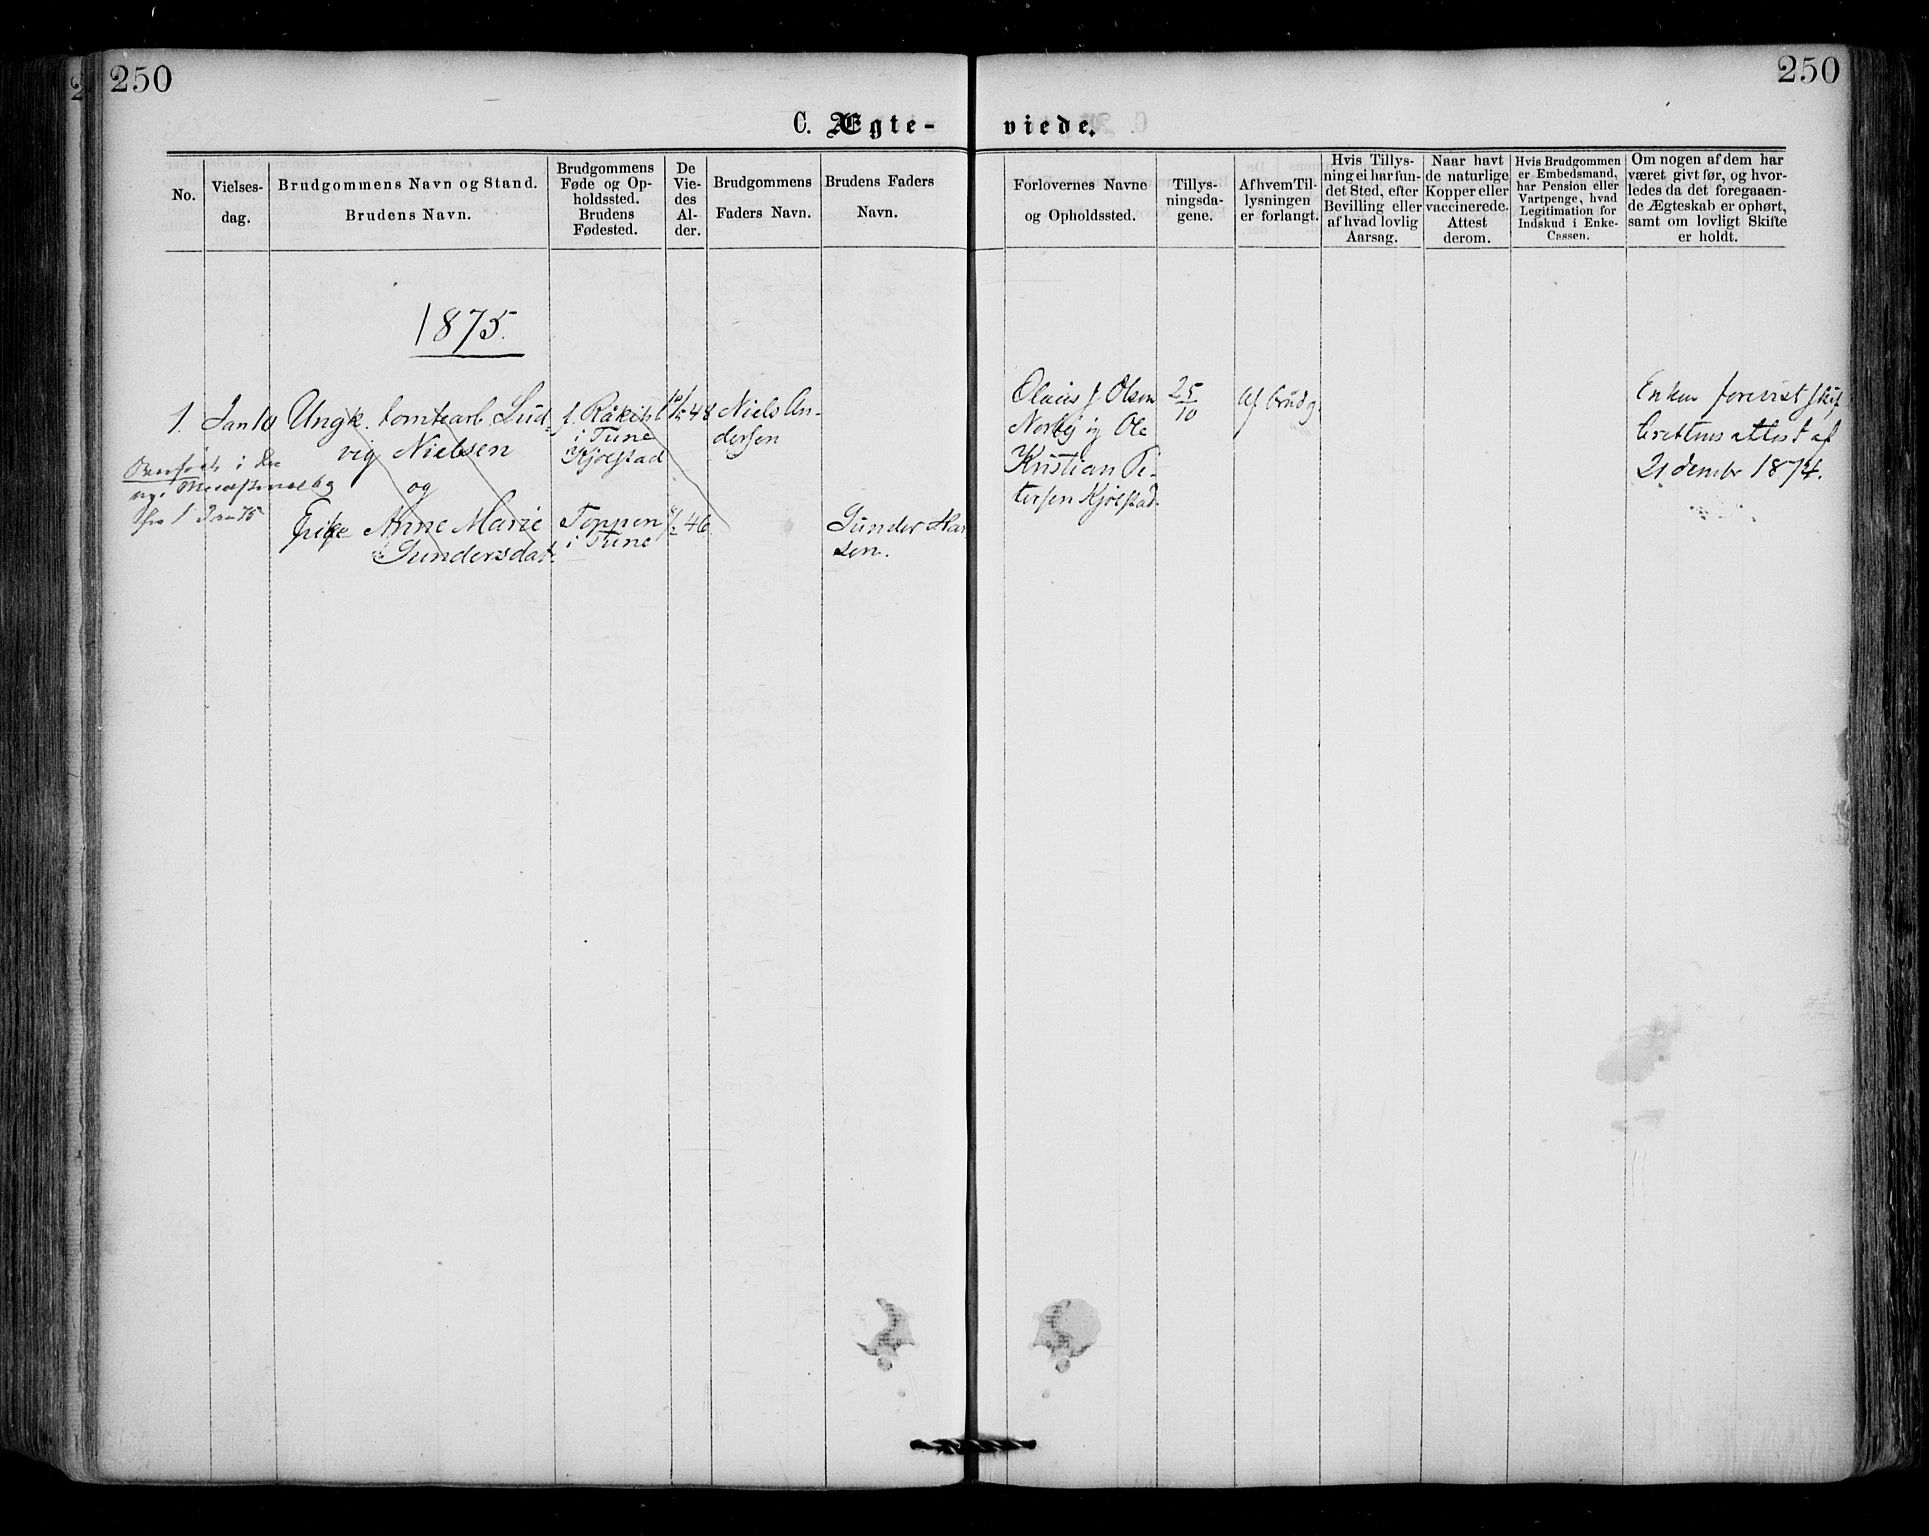 250
250
C. Ægte-
viede.
No.
Vielses-
dag.
Brudgommens Navn og Stand.
Brudens Navn.
Brudgommens
Føde og Op-
holdssted.
Brudens
Fødested.
De
Vie-
des
Al-
der.
Brudgommens
Faders Navn.
Brudens Faders
Navn.
Forlovernes Navne
og Opholdssted.
Tillys-
ningsda-
gene.
Af hvem Til-
lysningen
er forlangt.
Hvis Tillys-
ning ei har fun-
det Sted, efter
Bevilling eller
af hvad lovlig
Aarsag.
Naar havt
de naturlige
Kopper eller
vaccinerede.
Attest
derom.
Hvis Brudgommen
er Embedsmand,
har Pension eller
Vartpenge, hvad
Legitimation for
Indskud i Enke-
Cassen.
Om nogen af dem har
været givt før, og hvor-
ledes da det foregaaen-
de Ægteskab er ophørt,
samt om lovligt Skifte
er holdt.
1875.
1.
Jan 10
Ungk. tomtearb Lud-
vig Nielsen
og
Anne Marie
Gundersdat.
f. Råkil
i Tune
Kjølstad
Toppen
i Tune
48
46
Niels An-
dersen
Gunder Han
sen.
Olaus J. Olsen
Norby og Ole
Kristian Pe-
tersen Kjølstad.
25
10
af brudg.
Enken forevist skif
brettens attest af
21 dember 1874.
i den
1 Jan 75